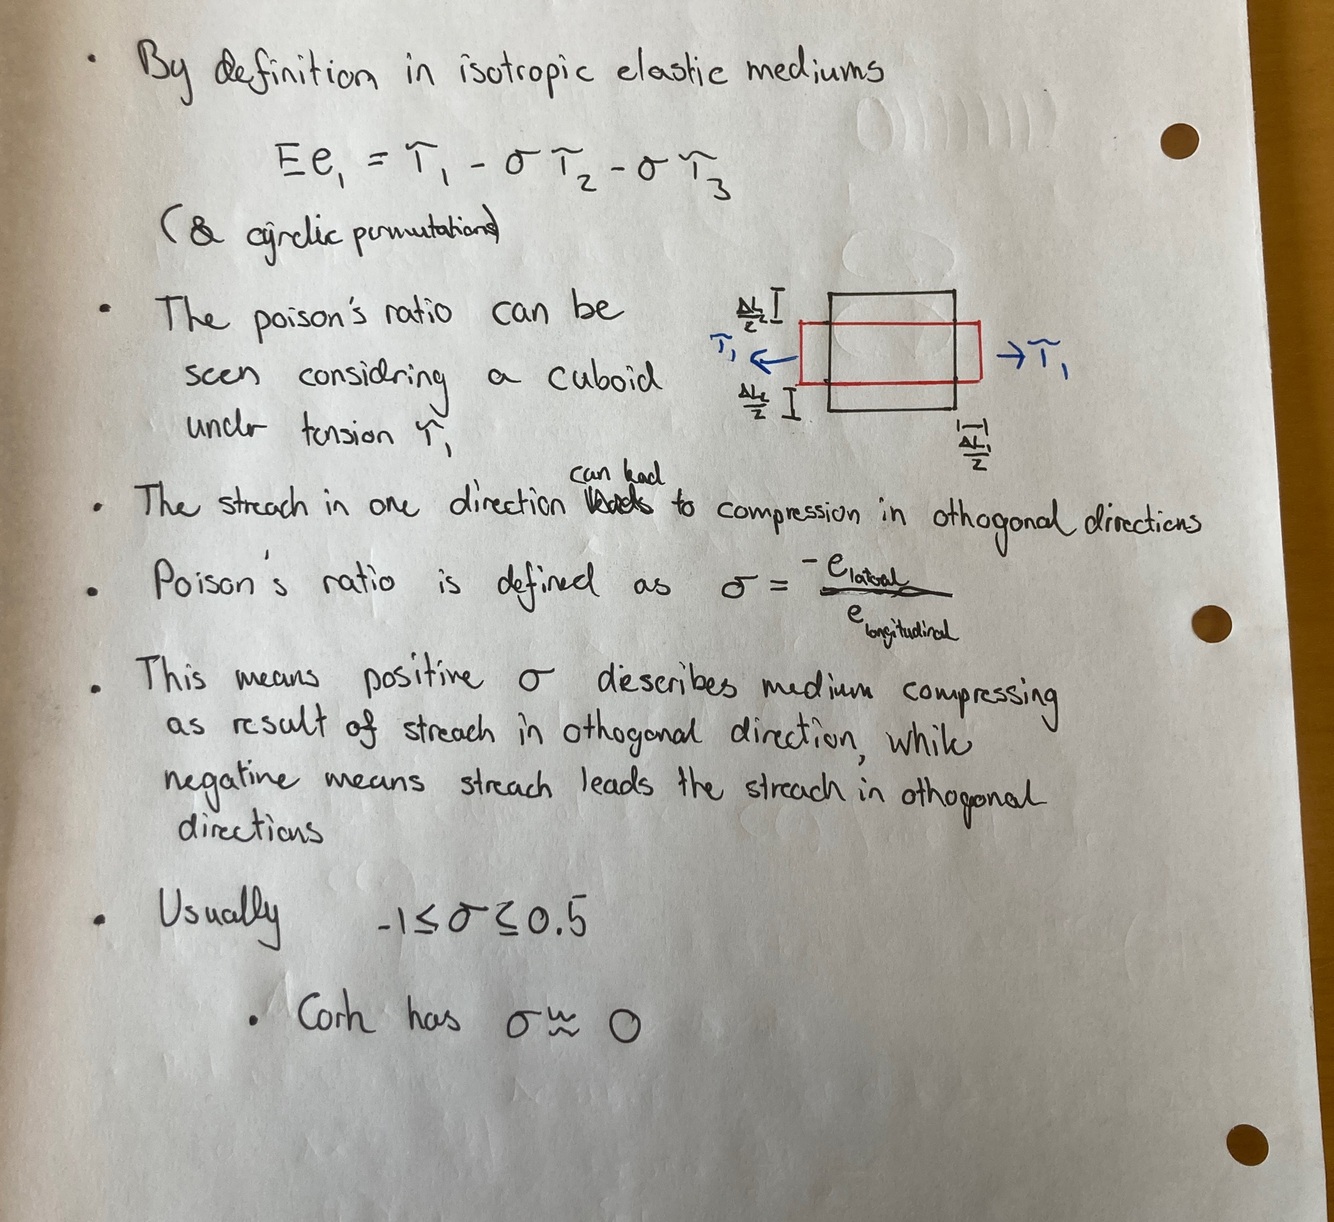 • By definition in isotropic elastic mediums
Ee₁ = τ₁ - σ τ₂ - σ τ₃
(& cyrclic permutations)
• The poison's ratio can be
seen considring a cuboid
under tension τ₁
ΔL₂/2
τ₁ ← → τ₁
ΔL₂/2
ΔL₁/2
• The streach in one direction can lead to compression in othogonal directions
• Poison's ratio is defined as σ = -e lateral / e longitudinal
• This means positive σ describes medium compressing
as result of streach in othogonal direction, while
negative means streach leads the streach in othogonal
directions
• Usually -1 ≤ σ ≤ 0.5
• Cork has σ ≈ 0